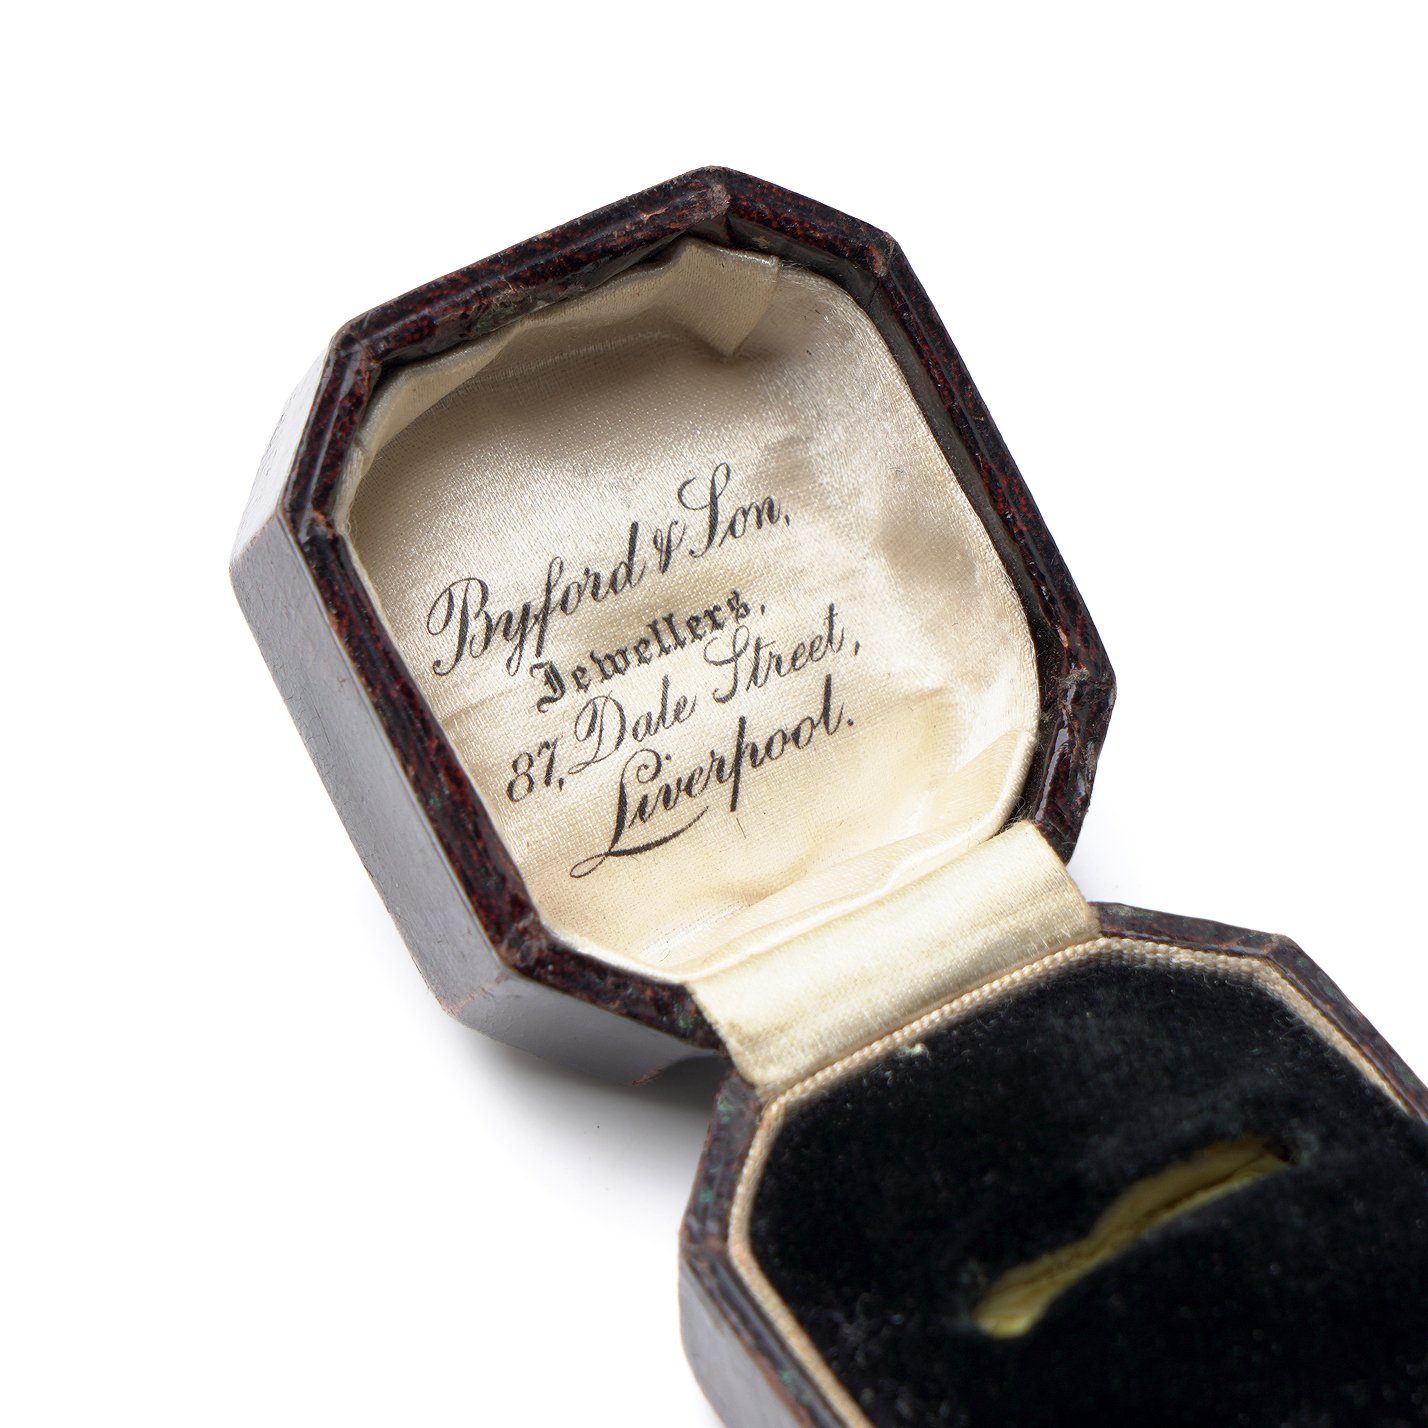 Byford & Son,
Jewellers,
87, Dale Street,
Liverpool.